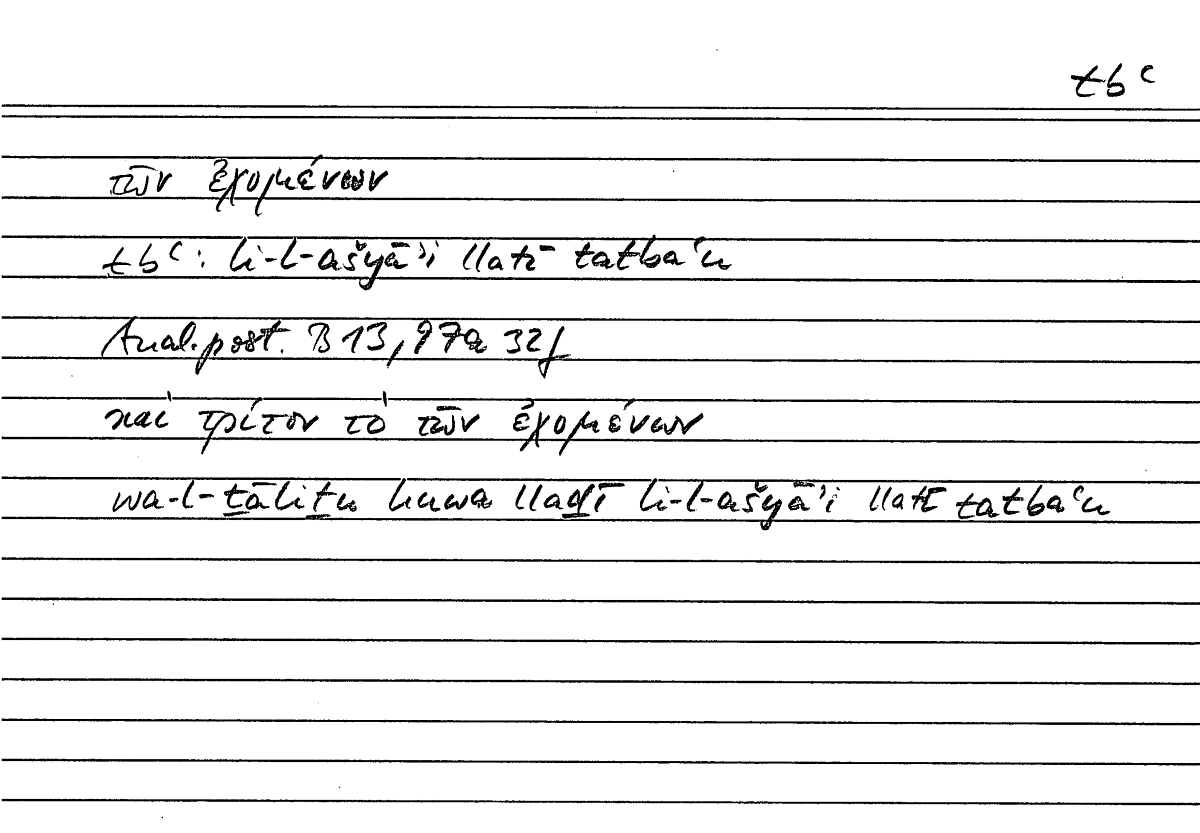 tbʿ
τῶν ἐχομένων
tbʿ: li-l-ašyāʾi llatī tatbaʿu
Anal.post. B 13, 97a 32f
καὶ τρίτον τὸ τῶν ἐχομένων
wa-l-ṯāliṯu huwa llaḏī li-l-ašyāʾi llatī tatbaʿu